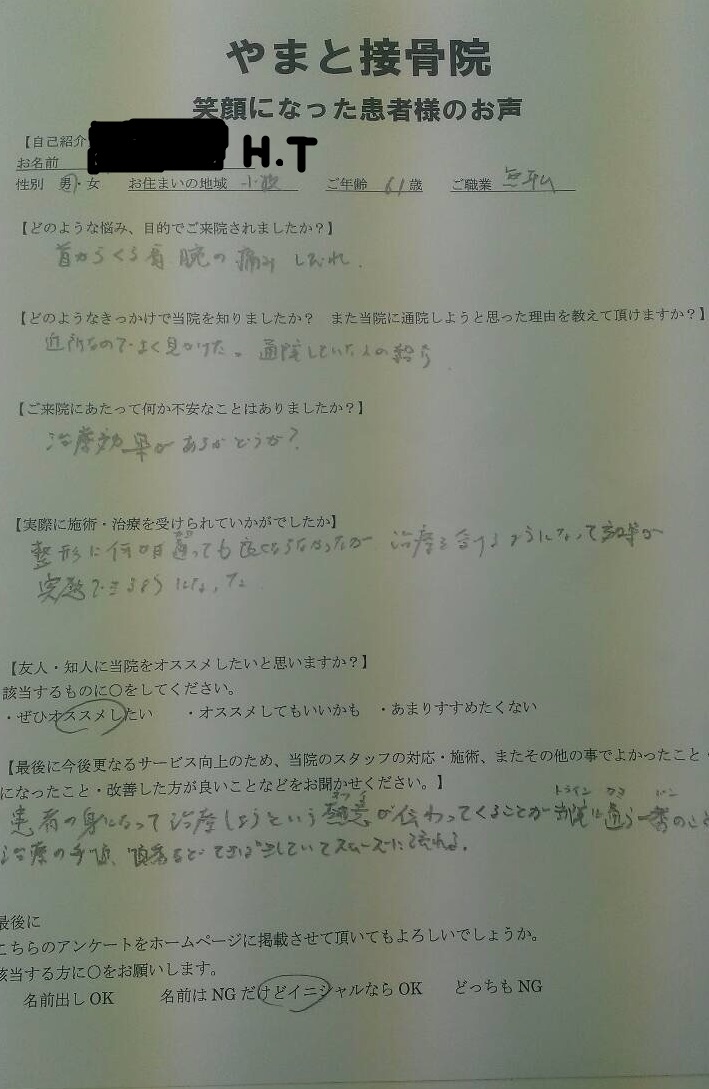 やまと接骨院
笑顔になった患者様のお声
【自己紹介
お名前 H.T
性別 男・女 お住まいの地域 小 ご年齢 61歳 ご職業
【どのような悩み、目的でご来院されましたか？】
首から 肩 腕の痛み しびれ
【どのようなきっかけで当院を知りましたか？ また当院に通院しようと思った理由を教えて頂けますか？】
近所なのでよく見かけた。通院していた人の紹介
【ご来院にあたって何か不安なことはありましたか？】
治療効果があるかどうか？
【実際に施術・治療を受けられていかがでしたか】
整形に何か月通っても良くならなかったが 治療を受けるようになって効果が
実感できるようになった
【友人・知人に当院をオススメしたいと思いますか？】
該当するものに○をしてください。
・ぜひオススメしたい ・オススメしてもいいかも ・あまりすすめたくない
【最後に今後更なるサービス向上のため、当院のスタッフの対応・施術、またその他の事でよかったこと・
になったこと・改善した方が良いことなどをお聞かせください。】
患者の身になって治療しようという熱意が伝わってくることが当院に通う一番のこと
治療の手順、 など していてスムーズに流れる.
最後に
こちらのアンケートをホームページに掲載させて頂いてもよろしいでしょうか。
該当する方に○をお願いします。
名前出しOK 名前はNGだけどイニシャルならOK どっちもNG